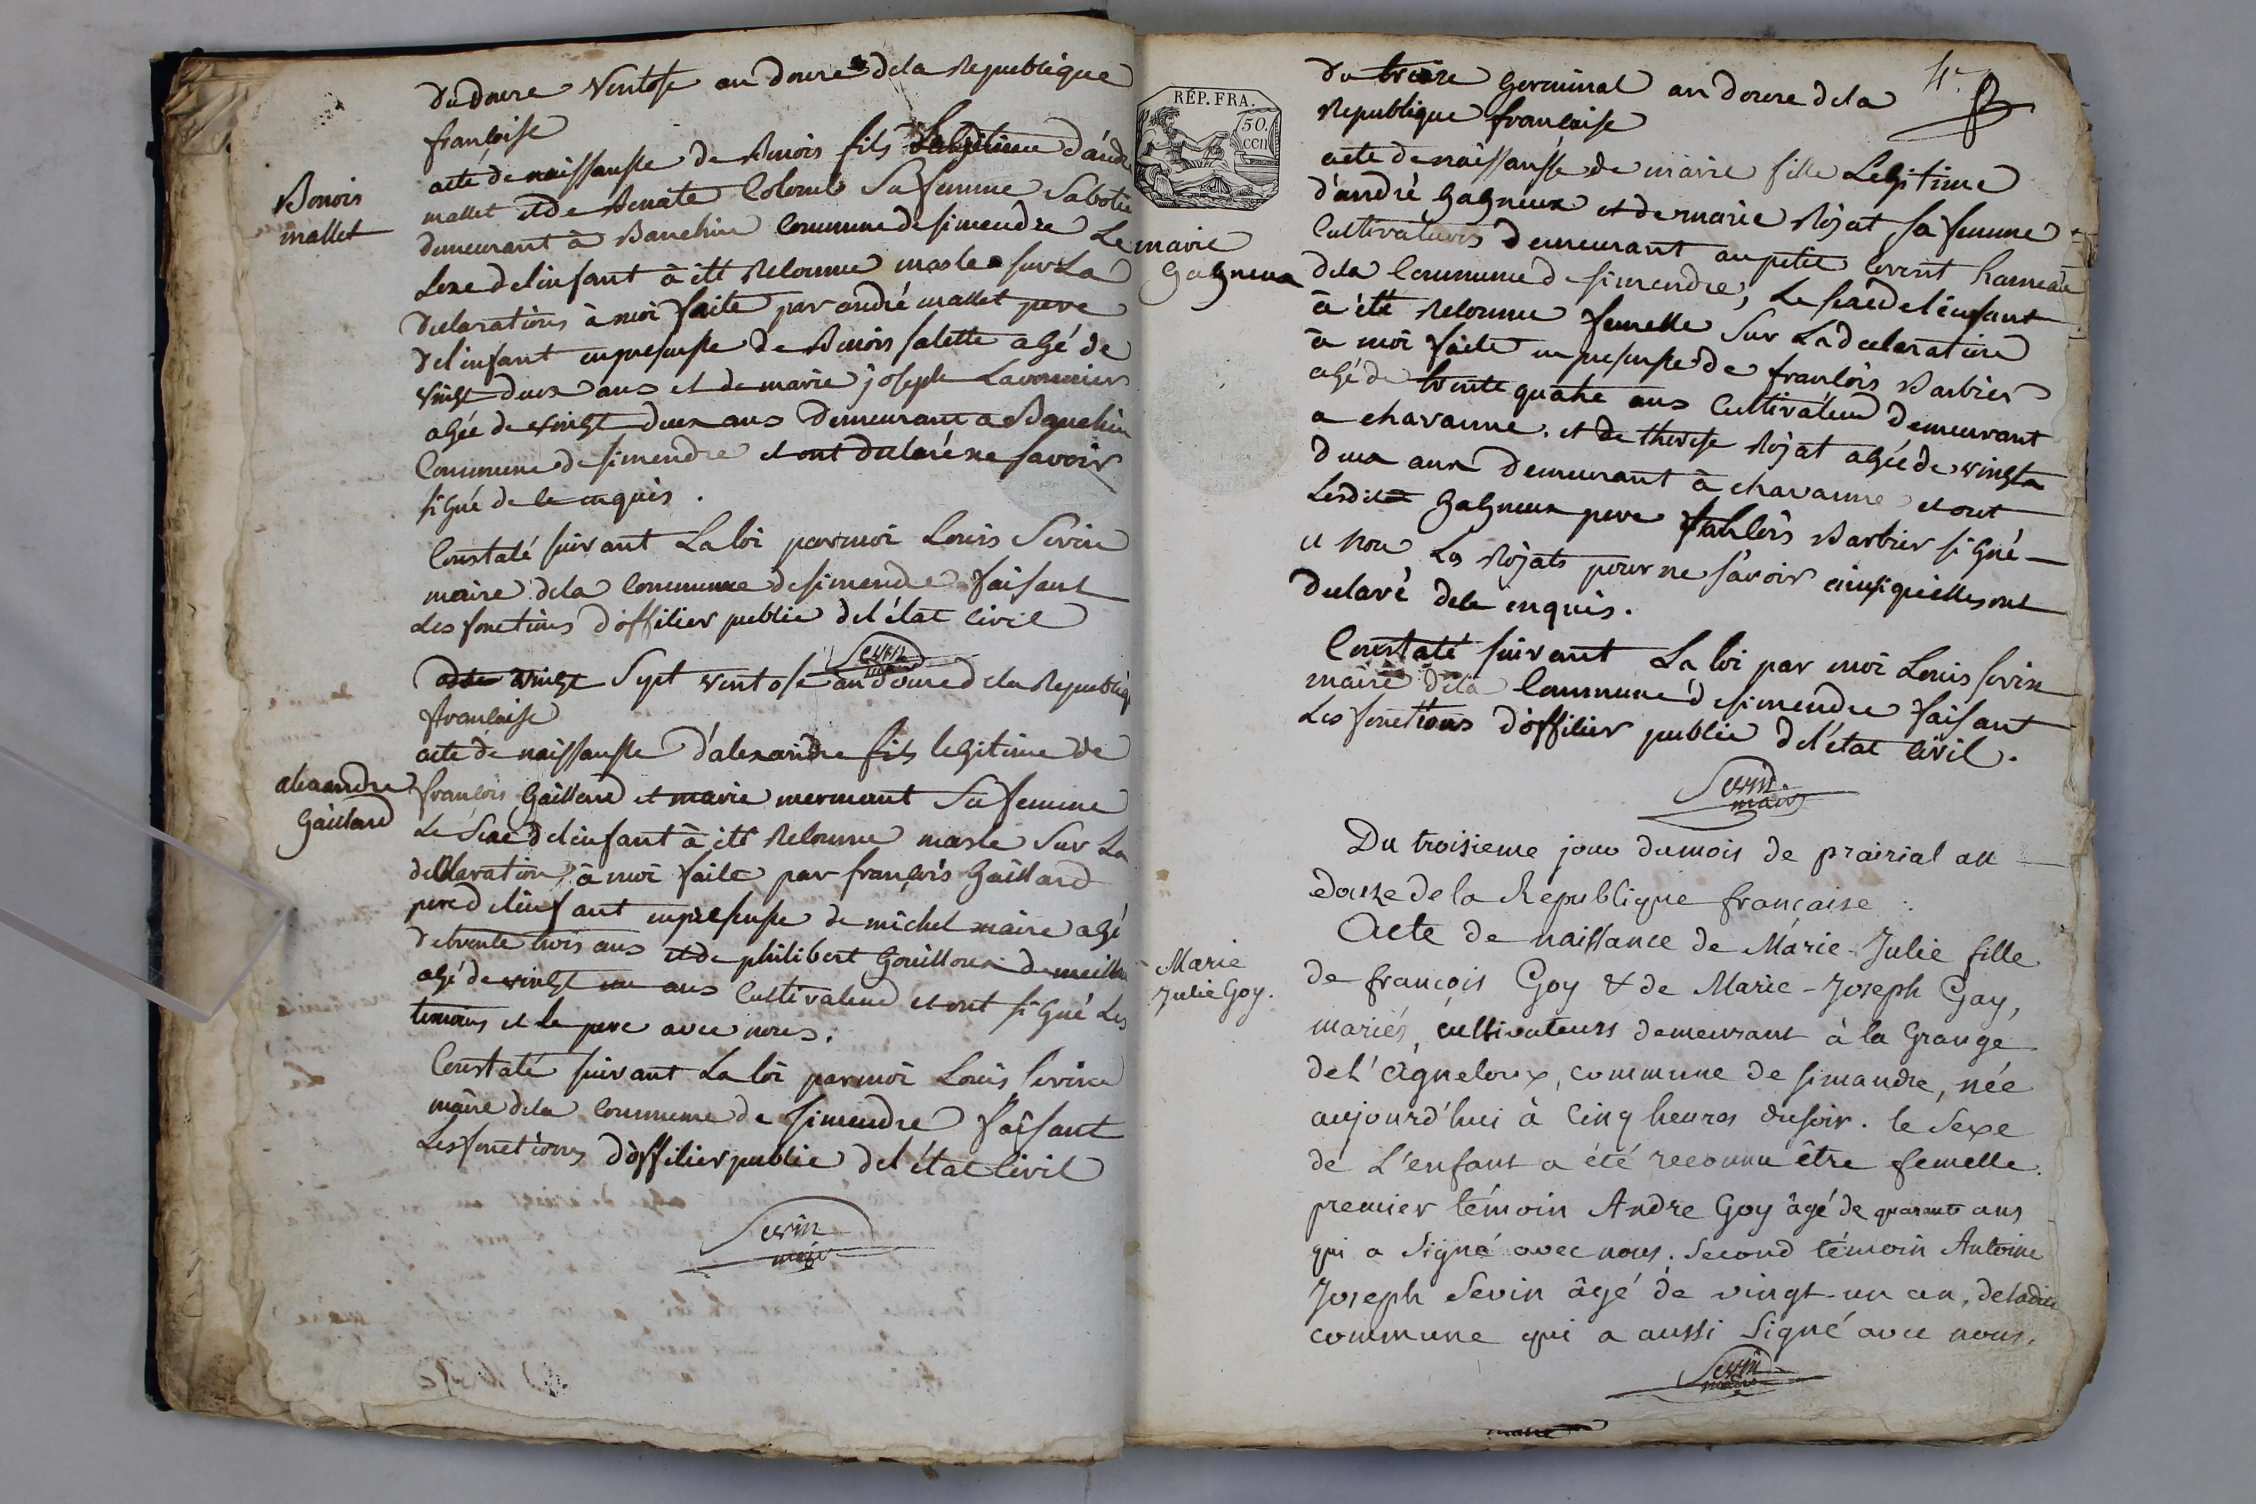 Du douze Ventose an douze dela Republique
françoise
acte de naissansse de Benois fils Legitime d'andré
Benois
mallet
mallet et de Benate Colomb sa femme Sabotie
demeurant à Banchin Commune de simendre Le
sexe delenfant à ett Reconnue masle sur La
Declaration à moi faite par andré mallet pere
delenfant enpresensse de Benois falette agé de
vingt deux ans et de marie joseph Lavonnier
agée de vingt deux ans Demeurant a Banchin
Commune de simendre et ont declaré ne savoir
signé de le enquis .
Constaté suivant La loi parmoi Louis Sevin
maire dela Commune de simendre faisant
Les fonctions d'officier public del'état Civil
Sevin
maire
vingt Sept ventose an douze dela Republiq
françaisse
acte de naissansse d'alexandre fils legitime de
alexandre
Gaillard
françois Gaillard et marie mermant Sa femme
Le Sexe delenfant à ett Reconnue masle Sur La
declaration à moi faite par françois Gaillard
pere delenfant enpresensse de michel maire agé
de trente trois ans et de philibert Gouilloux de meill
agé de vingt un ans Cultivateur et ont signé Les
temoins et le pere avec nous.
Constaté suivant La loi parmoi Louis Sevin
maire dela Commune de simendre faisant
Les fonctions d'officier public del'état Civil
Sevin
maire
4.
RÉP. FRA.
50.
CEN
Du treize Germinal an douze dela
Republique françaisse
acte de naissansse de marie fille Legitime
d'andré Gagneux et de marie Rojat sa femme
marie
Gagneux
Cultivateurs demeurant au petit Corent hameau
dela Commune de simendre, Le sexe del'enfant
à été Reconnue femelle Sur La declaration
à moi faite en presensse de françois Barbier
agé de trente quatre ans Cultivateur demeurant
a chavanne. et de therese Rojat agée de vingt
deux ans Demeurant à chavanne et ont
Lesdit Gagneux pere françois Barbier signé
et non La Rojats pour ne savoir ainsi quelles ont
declaré dele enquis.
Constaté suivant La loi par moi Louis Sevin
maire dela Commune de simendre faisant
Les fonctions d'officier public del'état Civil.
Sevin.
maire
Du troisieme jour dumois de prairial an
douze de la Republique française.
Acte de naissance de Marie-Julie fille
Marie
Julie Goy.
de françois Goy & de Marie-Joseph Gay,
mariés, cultivateurs demeurant à la Grange
de L'agneloux, commune de simandre, née
aujourd'hui à Cinq heures dusoir. le Sexe
de L'enfant a été reconnu être femelle.
premier témoin Andre Goy âgé de quarante ans
qui a signé avec nous. Second témoin Antoine
Joseph Sevin âgé de vingt-un an, deladite
commune qui a aussi signé avec nous.
Sevin
maire
maire